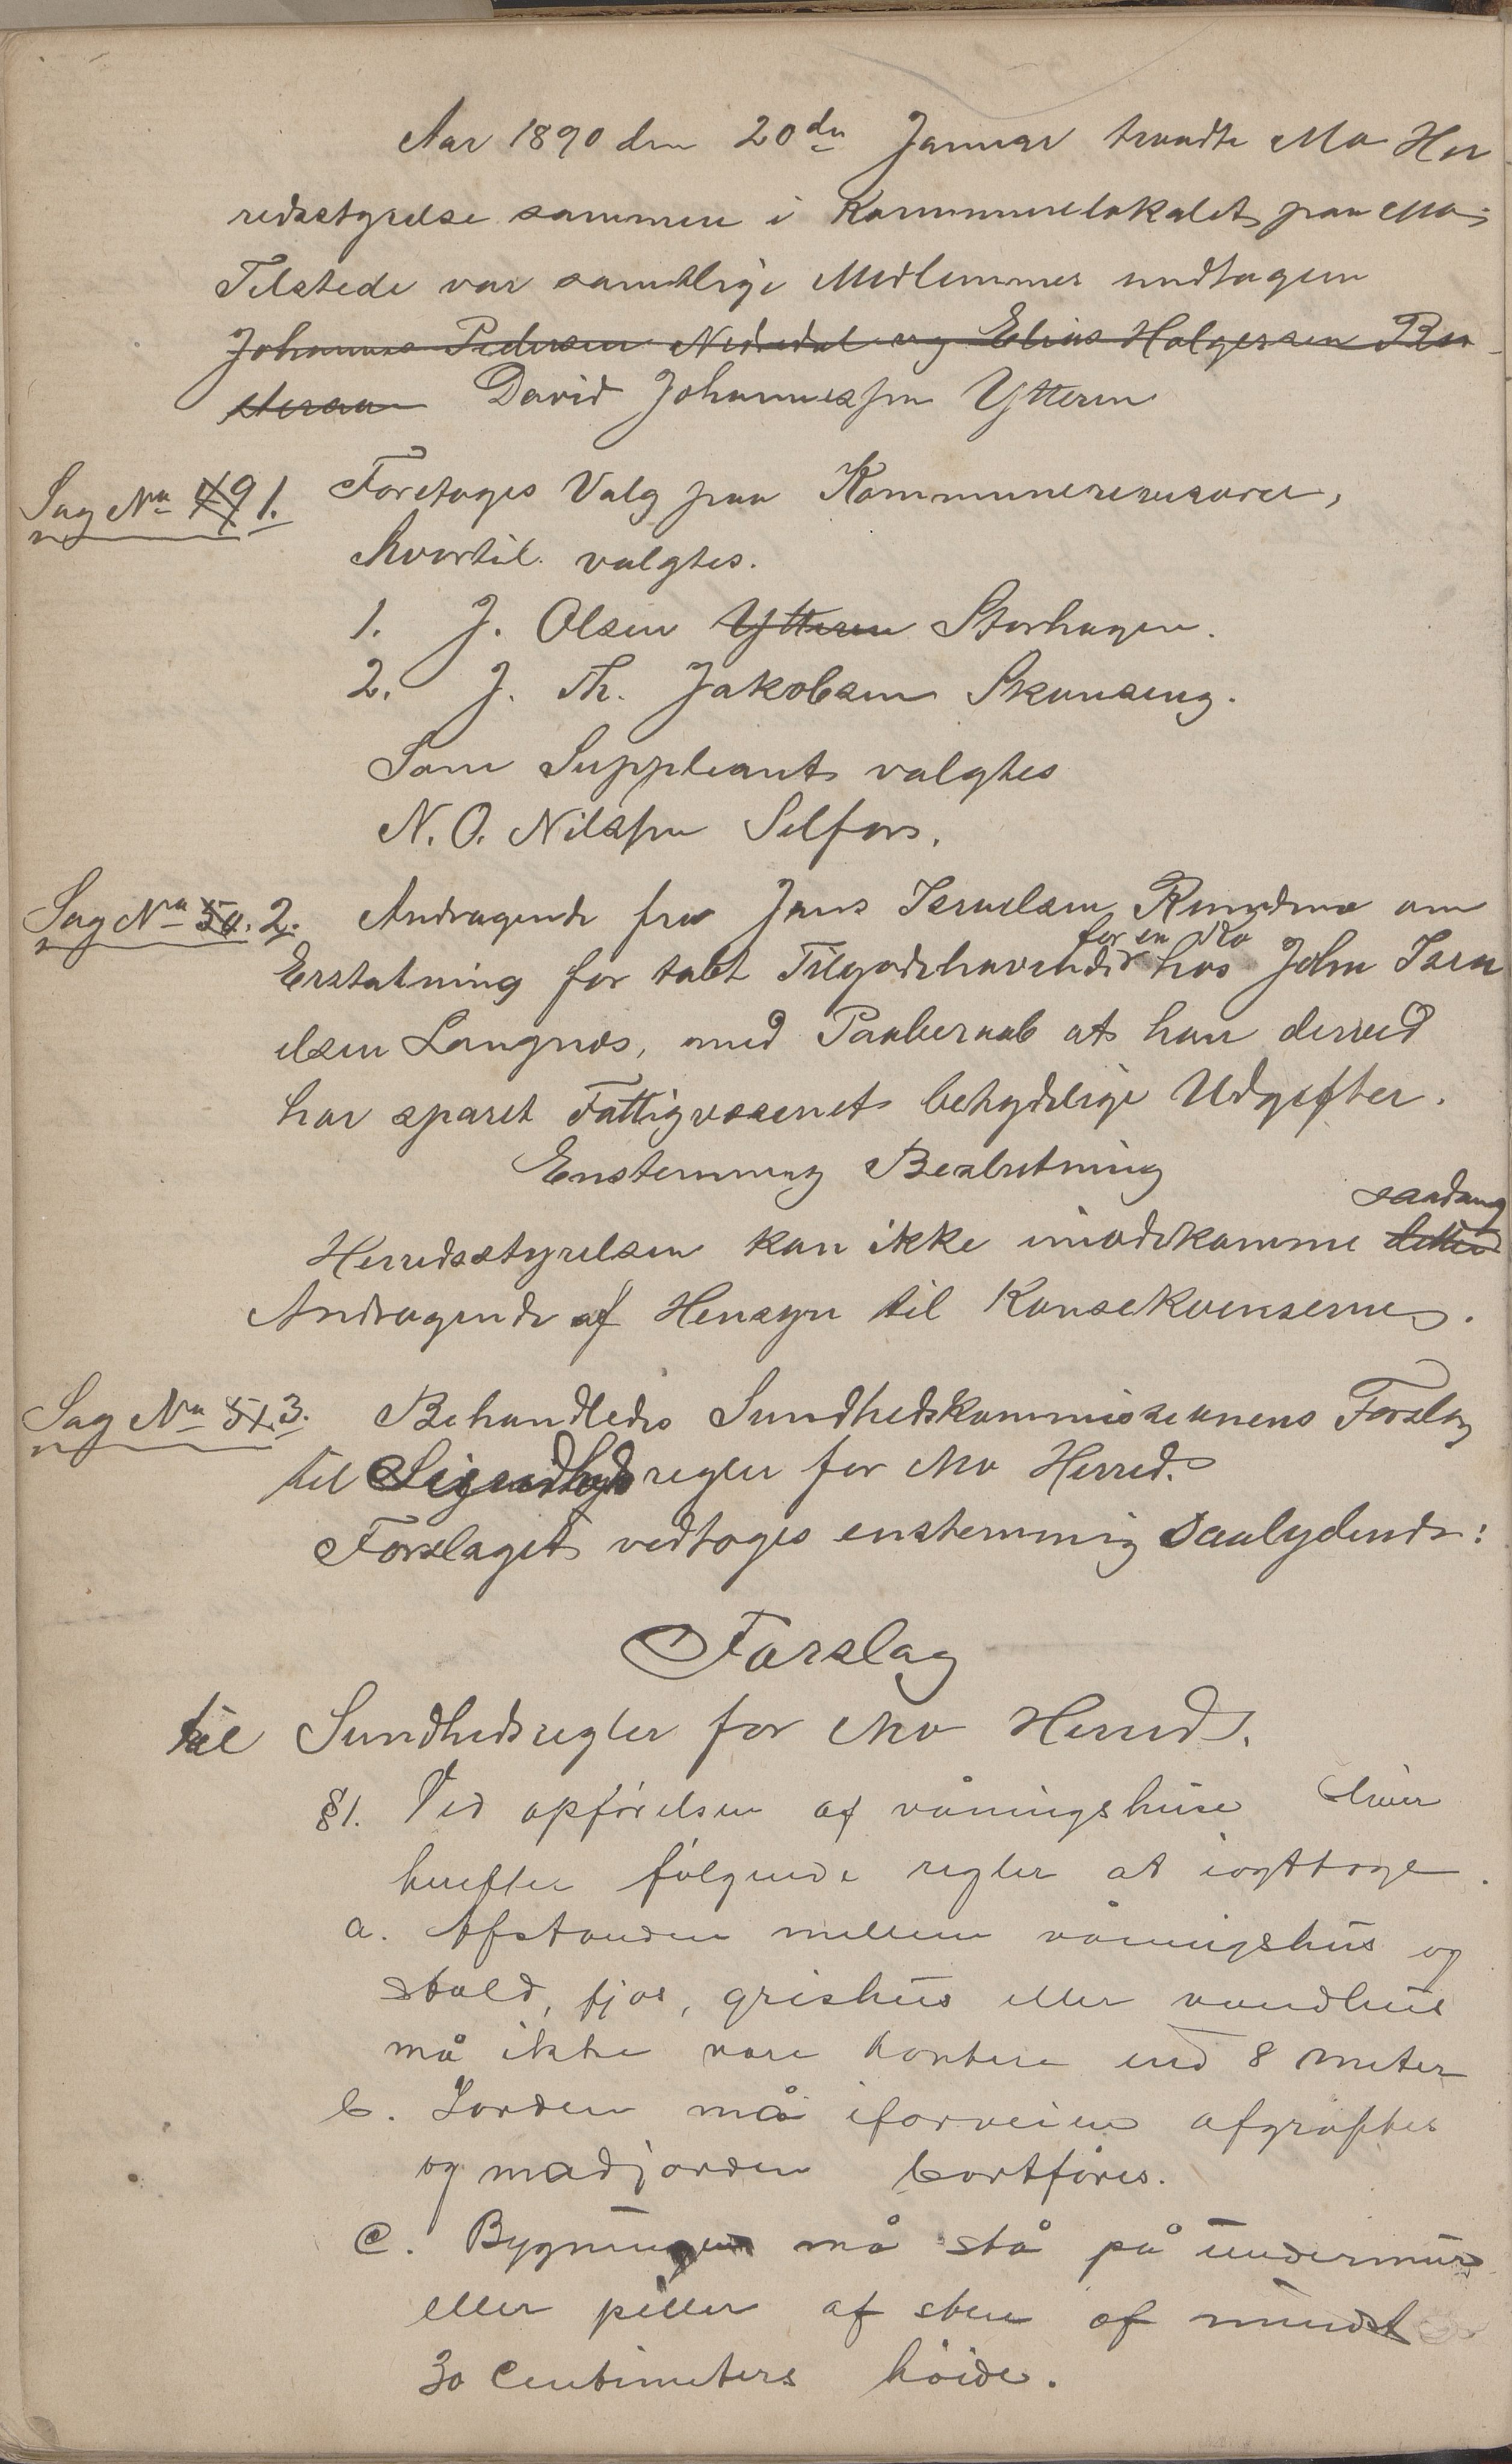 Aar 1890 den 20de Januar traadte Mo Her
redsstyrelse sammen i Kommunelokalet paa Mo;
Tilstede var samtlige Medlemmer undtagen
Johannes Pedersen Nedredal og Elias Holgersen Bu
steraan David Johannesen Ytteren
Sag No 49 1. Foretoges Valg paa Kommunerevisorer,
hvortil valgtes.
1. J. Olsen Ytteren Storhagen.
2. J. Th. Jakobsen Skonseng.
Som Suppleant valgtes
N. O. Nilssen Selfors.
Sag No 50. 2. Andragende fra Jens Israelsen om
for en Ko
Erstatning for tabt Tilgodehavende hos John Isra
elsen Langnæs, med Paaberaab at han derved
har sparet Fattigvæsenet betydelige Udgifter.
Enstemmig Beslutning
saadang
Herredsstyrelsen kan ikke imødekomme dette
Andragende af Hensyn til Konsekvenserne.
Sag No 51. 3. Behandledes Sundhedskommissionens Forslag
til Sundhedsregler for Mo Herred.
Forslaget vedtoges enstemmig saalydende:
Forslag
til Sundhedsregler for Mo Herred.
§1. Ved opførelsen af våningshuse bliver
herefter følgende regler at iagttage.
a. Afstanden mellem våningshus og
stald, fjøs, grishus eller vandhus
må ikke være kortere end 8 meter
b. Jorden må iforveien afgrøftes
og madjorden bortføres.
c. Bygningen må stå på undermur
eller piller af sten af mindst
30 Centimeters høide.